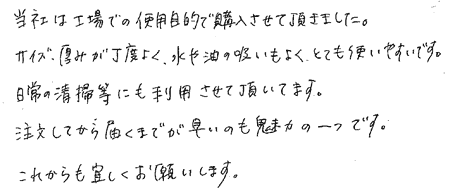 当社は工場での使用目的で購入させて頂きました。
サイズ、厚みが丁度よく、水や油の吸いもよく、とても使いやすいです。
日常の清掃等にも利用させて頂いてます。
注文してから届くまでが早いのも魅力の一つです。
これからも宜しくお願いします。